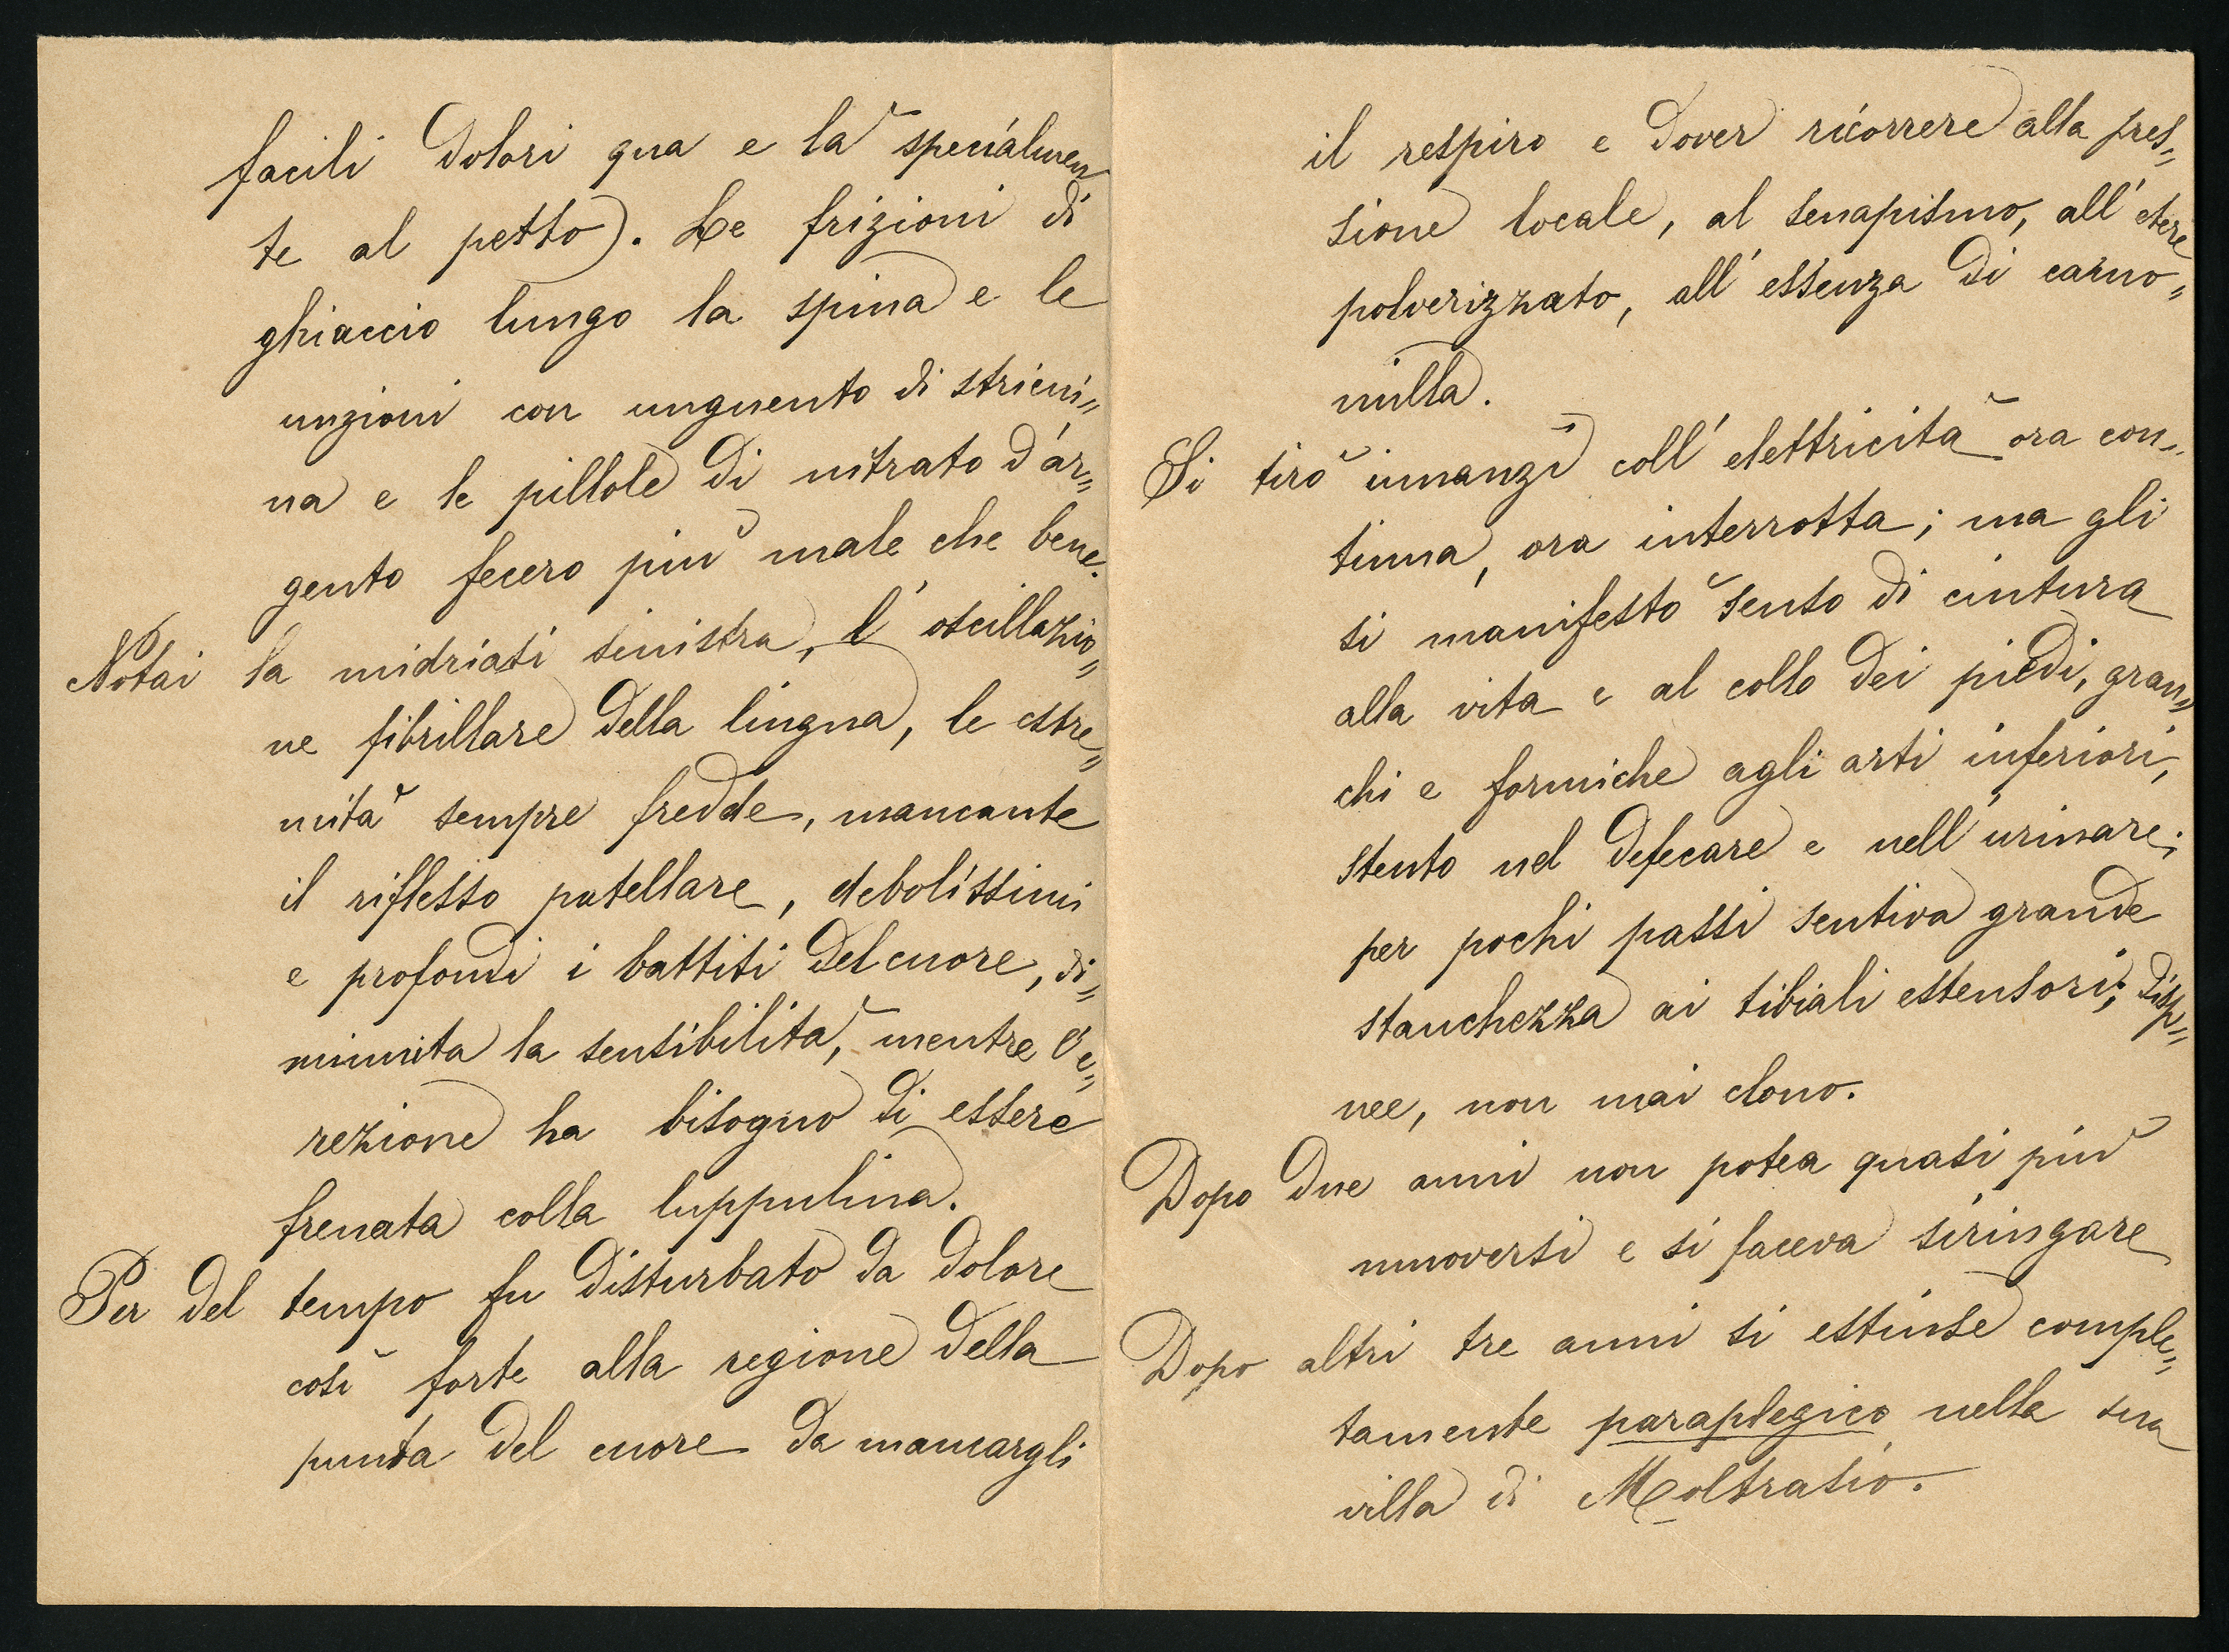 facili dolori qua e là specialmen
te al petto). Le frizioni di
ghiaccio lungo la spina e le
unzioni con unguento di stricni=
na e le pillole di nitrato d'ar=
gento fecero più male che bene.
Notai la midriasi sinistra, l'oscillazio=
ne fibrillare della lingua, le estre=
mità sempre fredde, mancante
il riflesso patellare, debolissimi
e profondi i battiti del cuore, di=
minuita la sensibilità, mentre l'e=
rezione ha bisogno di essere
frenata colla luppulina.
Per del tempo fu disturbato da dolore
così forte alla regione della
punta del cuore da mancargli
il respiro e dover ricorrere alla pres=
sione locale, al senapismo, all'etere
polverizzato, all'essenza di camo=
milla.
Si tirò innanzi coll'elettricità ora con=
tinua, ora interrotta; ma gli
si manifestò senso di cintura
alla vita e al collo dei piedi, gran=
chi e formiche agli arti inferiori,
stento nel defecare e nell'urinare;
per pochi passi sentiva grande
stanchezza ai tibiali estensori; disp=
nee, non mai clono.
Dopo due anni non potea quasi più
muoversi e si faceva siringare
Dopo altri tre anni si estinse comple=
tamente paraplegico nella sua
villa di Moltrasio.